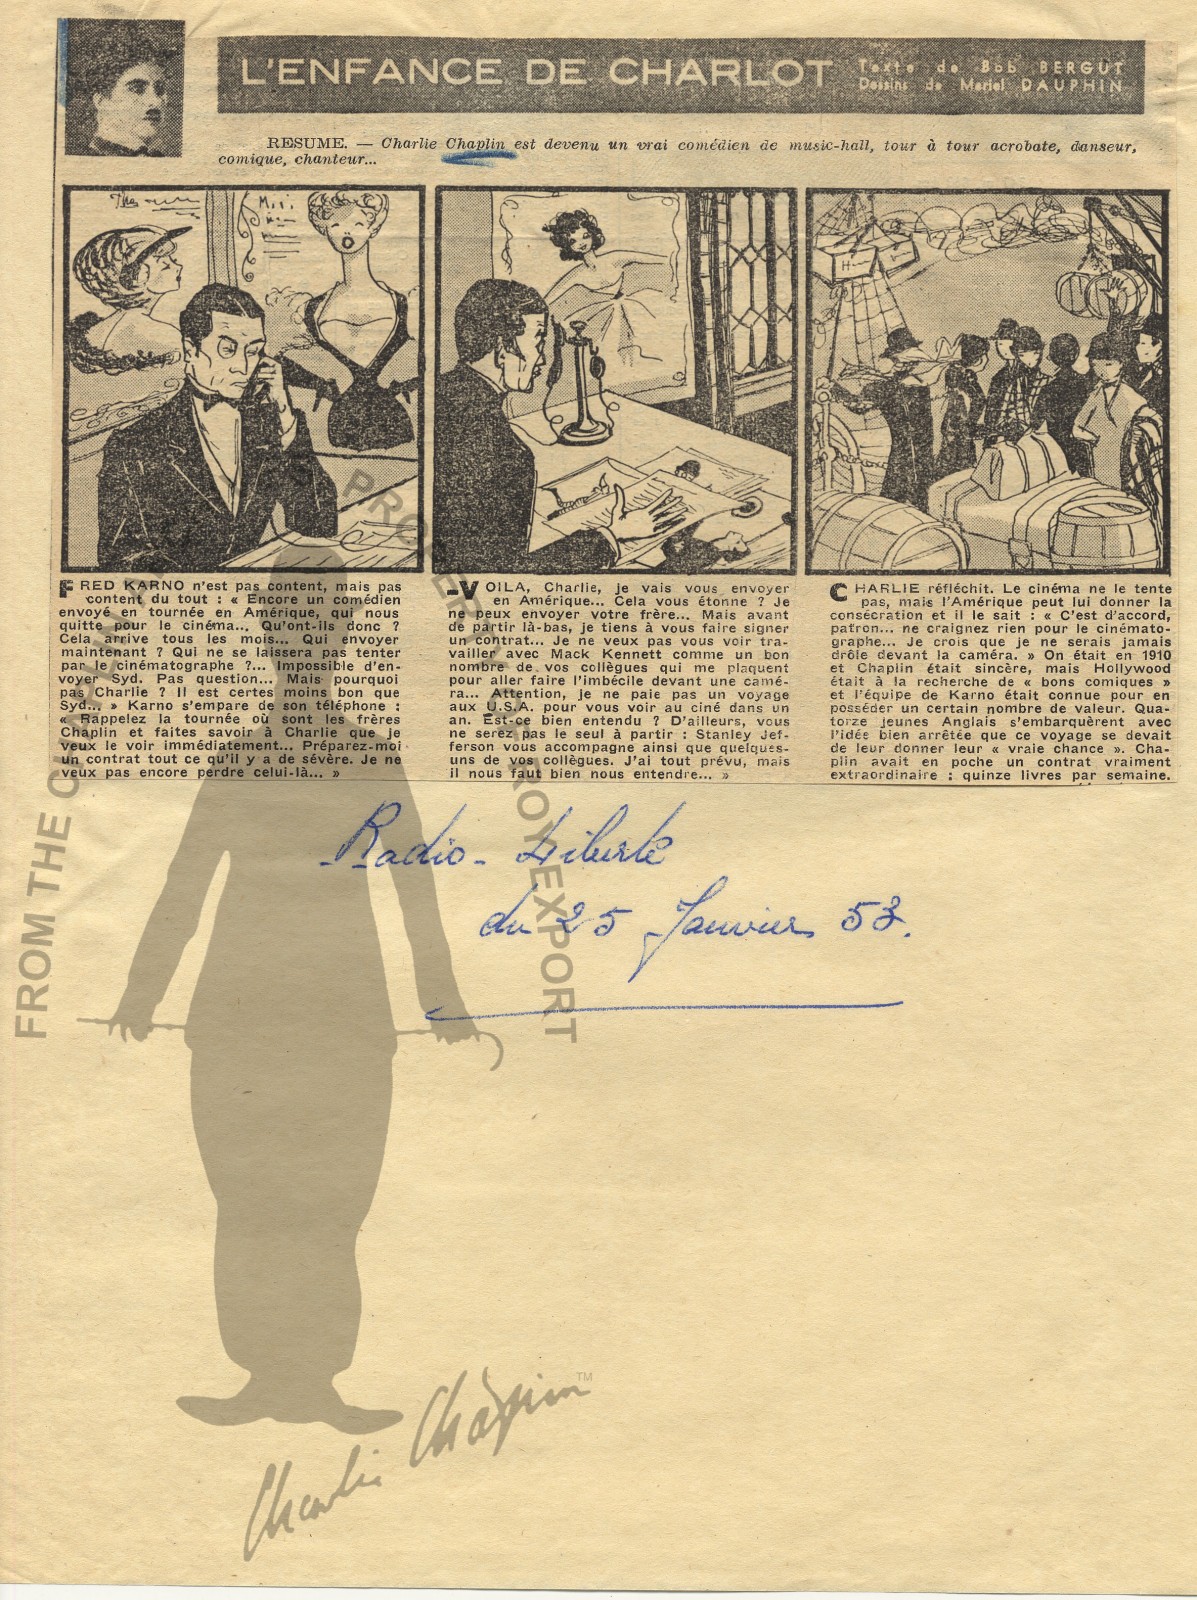 L'ENFANCE DE CHARLOT
Texte de Bob BERGUT
Dessins de Mariel DAUPHIN
RESUME. — Charlie Chaplin est devenu un vrai comédien de music-hall, tour à tour acrobate, danseur,
comique, chanteur...
FRED KARNO n'est pas content, mais pas
content du tout : « Encore un comédien
envoyé en tournée en Amérique, qui nous
quitte pour le cinéma... Qu'ont-ils donc ?
Cela arrive tous les mois... Qui envoyer
maintenant ? Qui ne se laissera pas tenter
par le cinématographe ?... Impossible d'en-
voyer Syd. Pas question... Mais pourquoi
pas Charlie ? Il est certes moins bon que
Syd... » Karno s'empare de son téléphone :
« Rappelez la tournée où sont les frères
Chaplin et faites savoir à Charlie que je
veux le voir immédiatement... Préparez-moi
un contrat tout ce qu'il y a de sévère. Je ne
veux pas encore perdre celui-là... »
-VOILA, Charlie, je vais vous envoyer
en Amérique... Cela vous étonne ? Je
ne peux envoyer votre frère... Mais avant
de partir là-bas, je tiens à vous faire signer
un contrat... Je ne veux pas vous voir tra-
vailler avec Mack Kennett comme un bon
nombre de vos collègues qui me plaquent
pour aller faire l'imbécile devant une camé-
ra... Attention, je ne paie pas un voyage
aux U.S.A. pour vous voir au ciné dans un
an. Est-ce bien entendu ? D'ailleurs, vous
ne serez pas le seul à partir : Stanley Jef-
ferson vous accompagne ainsi que quelques-
uns de vos collègues. J'ai tout prévu, mais
il nous faut bien nous entendre... »
CHARLIE réfléchit. Le cinéma ne le tente
pas, mais l'Amérique peut lui donner la
consécration et il le sait : « C'est d'accord,
patron... ne craignez rien pour le cinémato-
graphe... Je crois que je ne serais jamais
drôle devant la caméra. » On était en 1910
et Chaplin était sincère, mais Hollywood
était à la recherche de « bons comiques »
et l'équipe de Karno était connue pour en
posséder un certain nombre de valeur. Qua-
torze jeunes Anglais s'embarquèrent avec
l'idée bien arrêtée que ce voyage se devait
de leur donner leur « vraie chance ». Cha-
plin avait en poche un contrat vraiment
extraordinaire : quinze livres par semaine.
Radio-Liberté
du 25 Janvier 53.
FROM THE
PROPERTY
ROY EXPORT
Charlie Chaplin TM